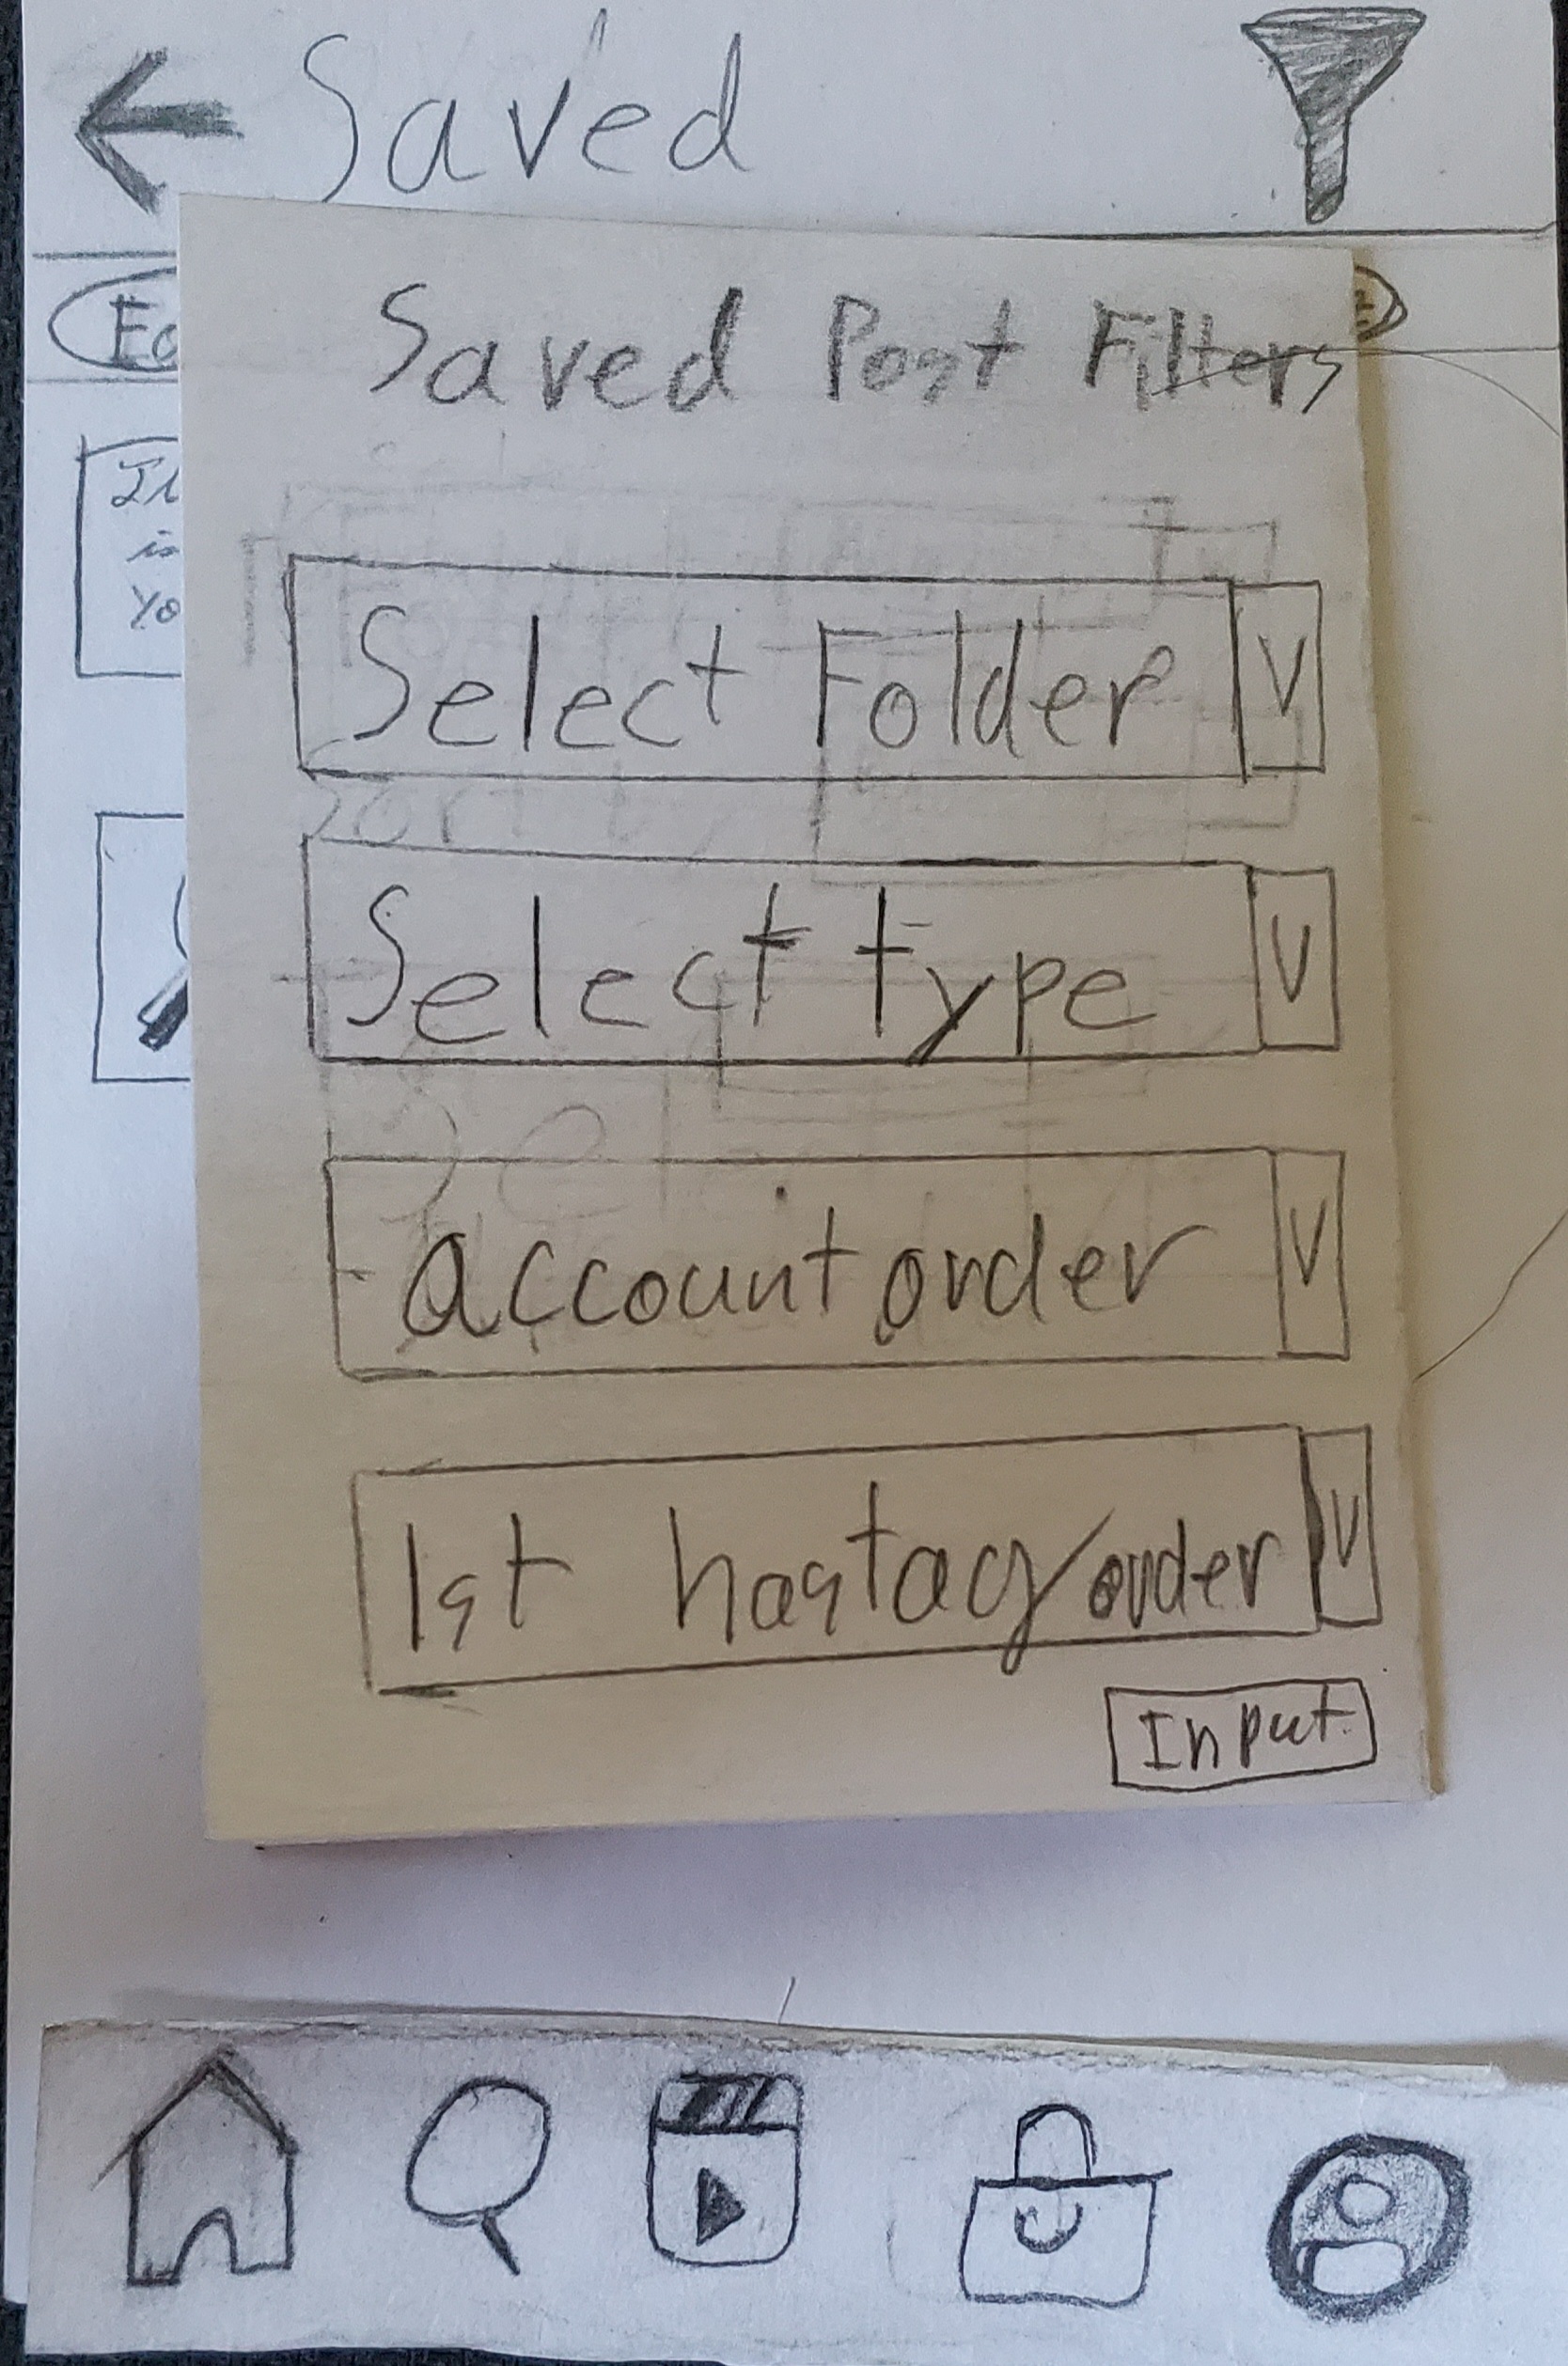 Saved
Saved Post Filters
Select Folder V
Select type V
account order V
1st hastag order V
Input